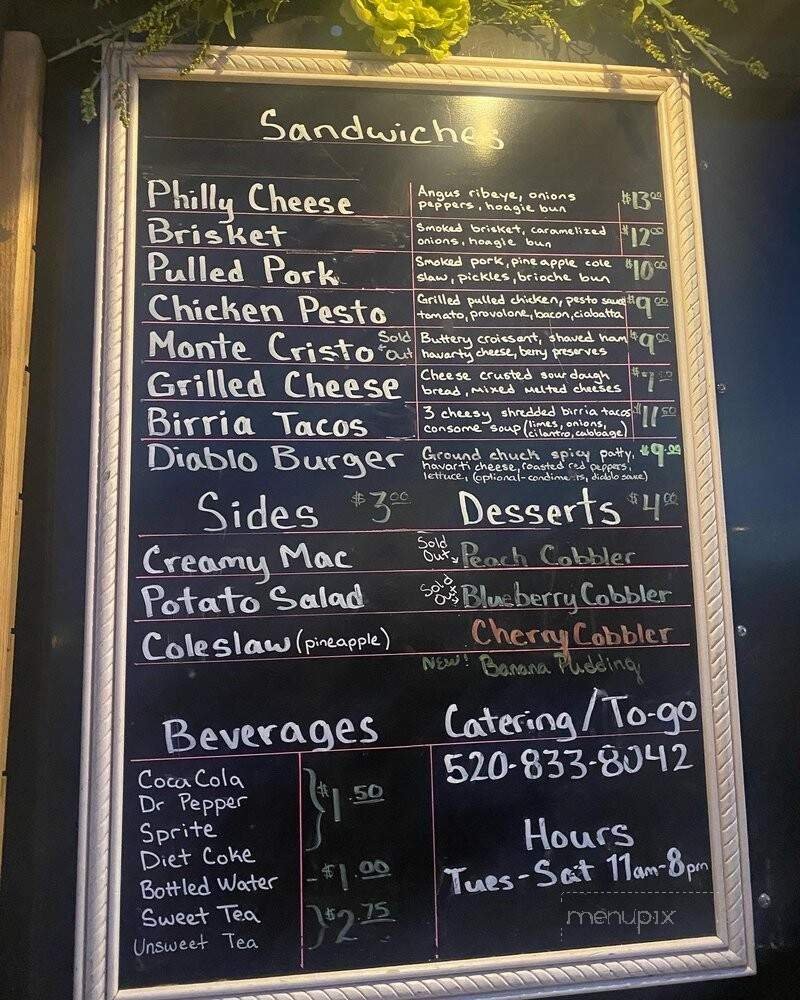 Sandwiches
Philly Cheese
Angus ribeye, onions
peppers, hoagie bun
$13.00
Brisket
Smoked brisket, caramelized
onions, hoagie bun
$12.00
Pulled Pork
Smoked pork, pineapple cole
slaw, pickles, brioche bun
$10.00
Chicken Pesto
Grilled pulled chicken, pesto sauce
tomato, provolone, bacon, ciabatta
$9.00
Monte Cristo
Sold out
Buttery croissant, shaved ham
havarty cheese, berry preserves
$9.00
Grilled Cheese
Cheese crusted sourdough
bread, mixed melted cheeses
Birria Tacos
3 cheesy shredded birria tacos
consome soup (limes, onions,
cilantro, cabbage)
$11.50
Diablo Burger
Ground chuck spicy patty,
havarti cheese, roasted red peppers,
lettuce, (optional-condiments, diablo sauce)
Sides $3.00
Creamy Mac
Potato Salad
Coleslaw (pineapple)
Desserts $4.00
Sold Out Peach Cobbler
Sold Out Blueberry Cobbler
Cherry Cobbler
New! Banana Pudding
Beverages
Coca Cola
Dr Pepper
Sprite
Diet Coke
$1.50
Bottled Water
- $1.00
Sweet Tea
Unsweet Tea
$2.75
Catering/To-go
520-833-8042
Hours
Tues-Sat 11am-8pm
menupix